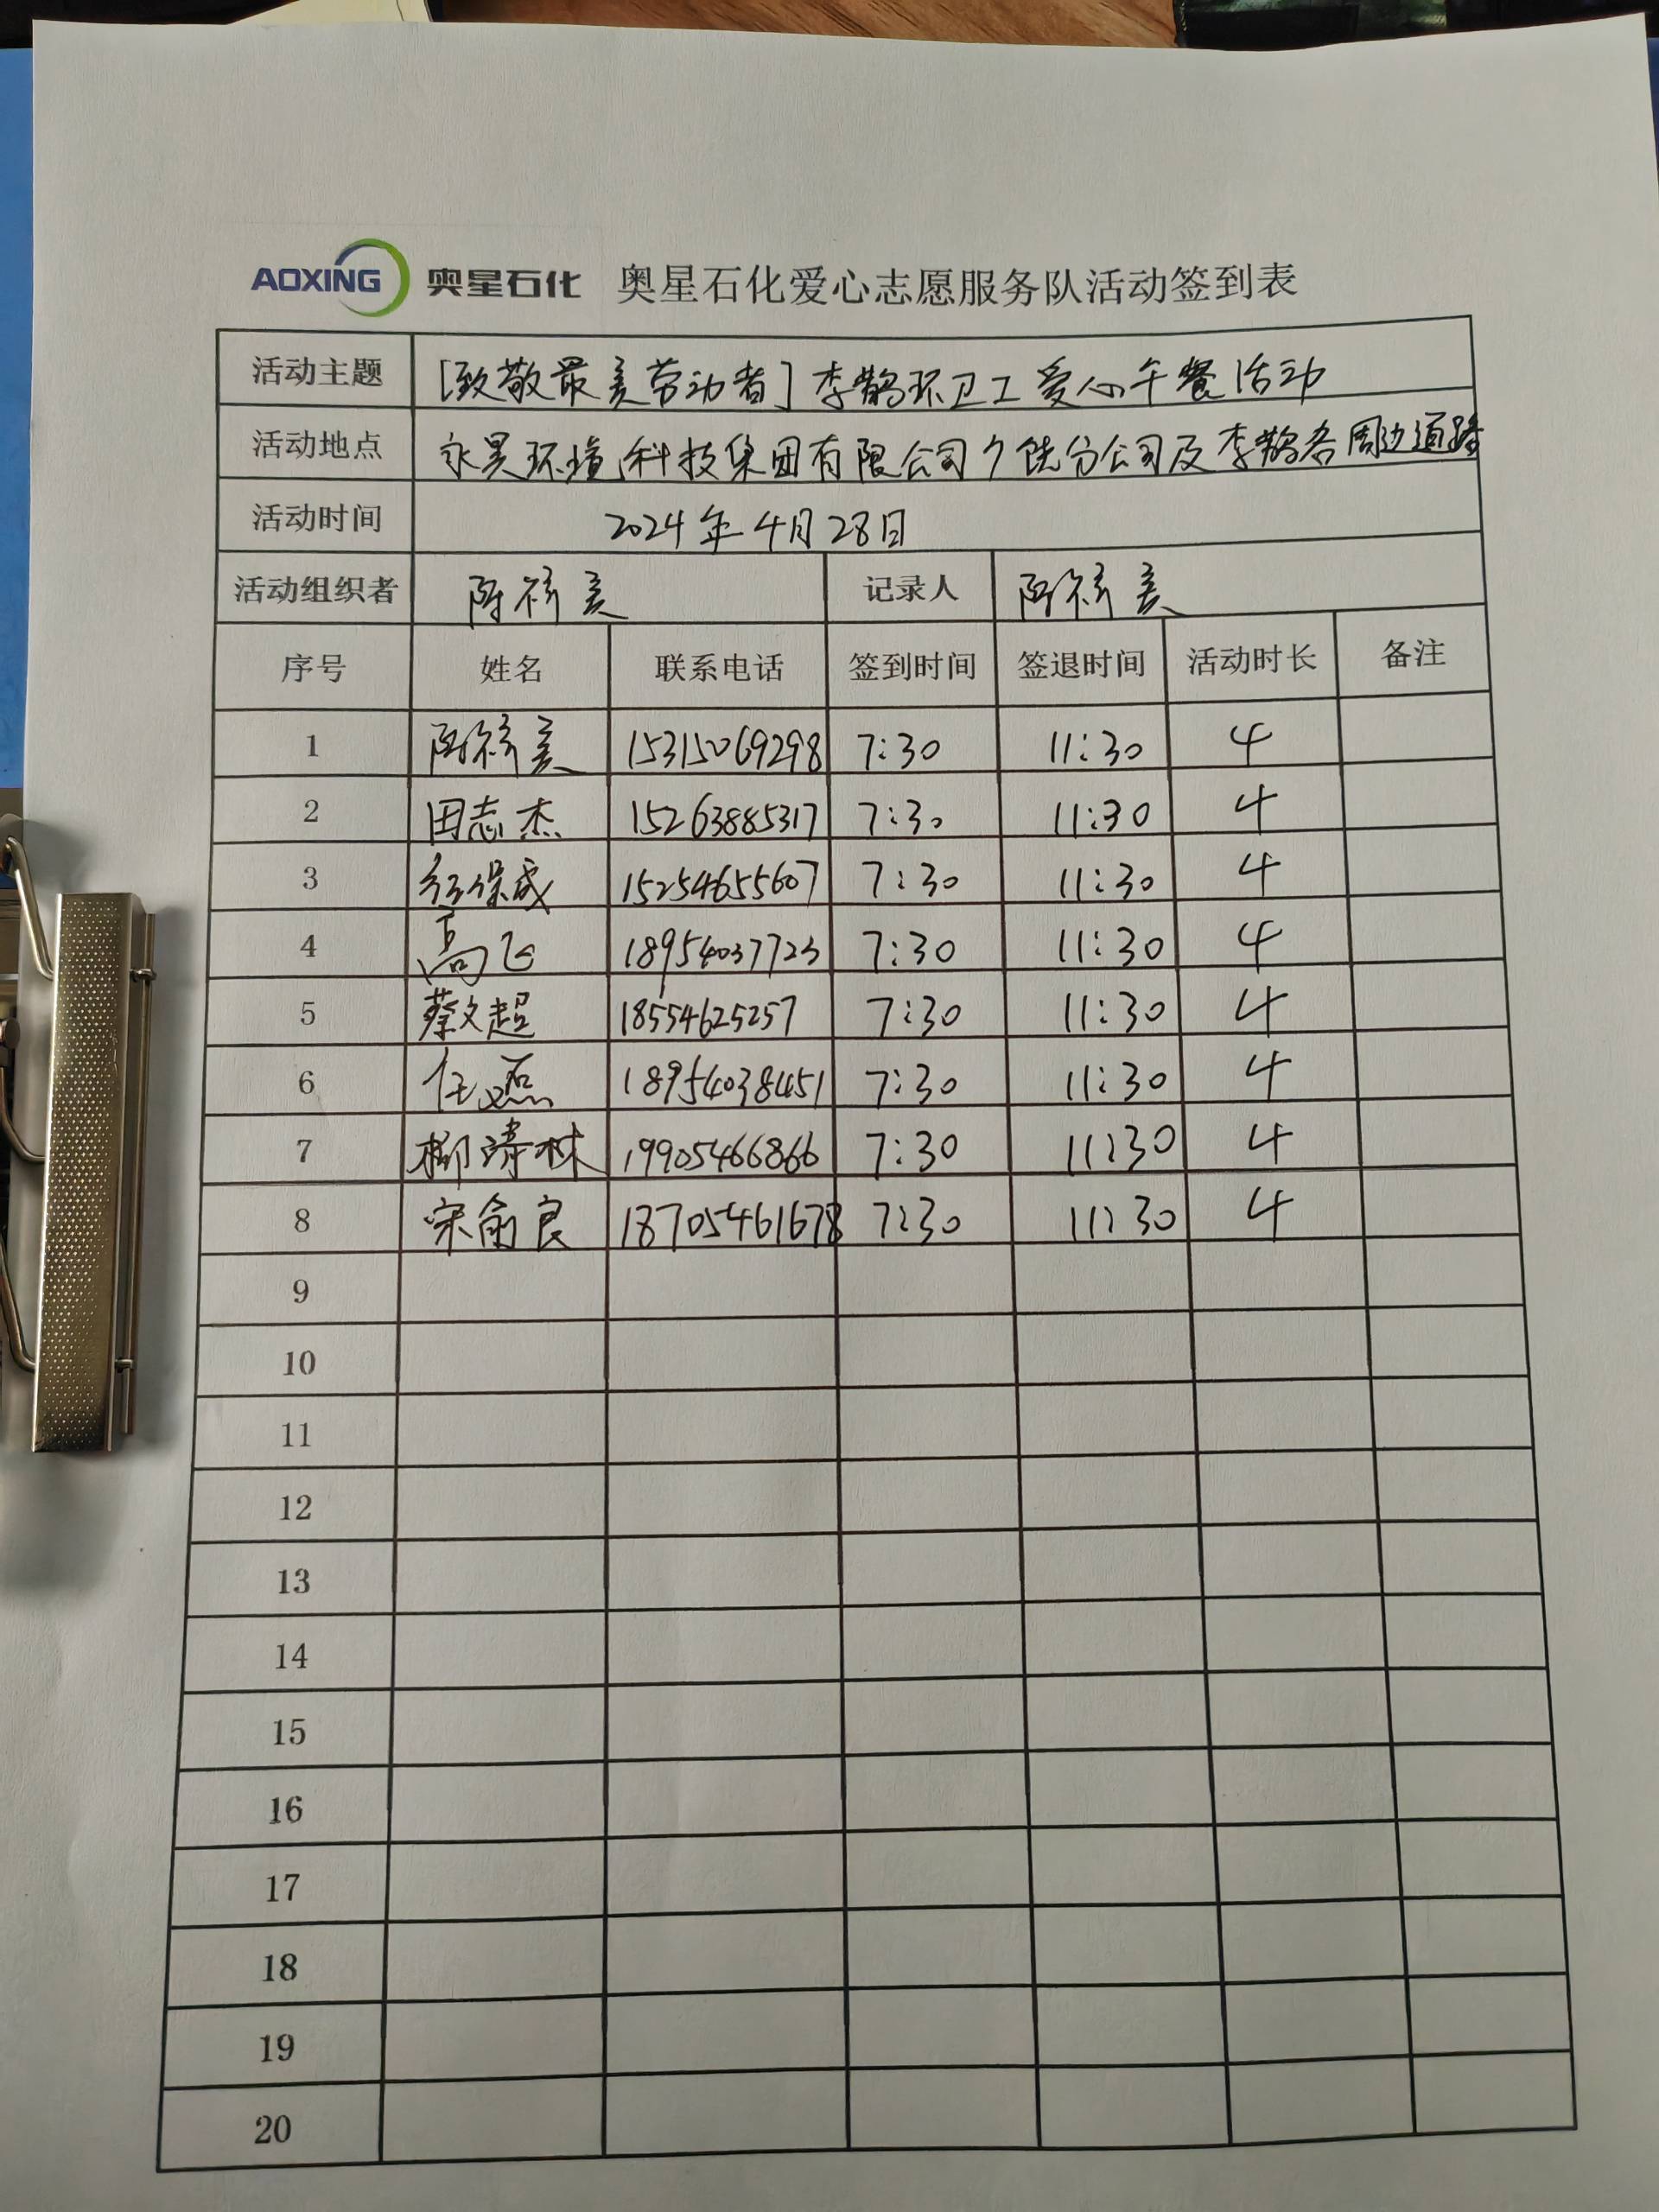 AOXING 奥星石化 奥星石化爱心志愿服务队活动签到表
活动主题 [致敬最美劳动者] 李鹊环卫工爱心午餐活动
活动地点 永昊环境科技集团有限公司广饶分公司及李鹊各周边道路
活动时间 2024年4月28日
活动组织者 陈 记录人 陈
序号 姓名 联系电话 签到时间 签退时间 活动时长 备注
1 陈 15315069298 7:30 11:30 4
2 田志杰 15263885317 7:30 11:30 4
3 保成 15254655607 7:30 11:30 4
4 高飞 18954037723 7:30 11:30 4
5 蔡文超 18554625257 7:30 11:30 4
6 任 18954038451 7:30 11:30 4
7 柳涛林 19905466866 7:30 11:30 4
8 宋俞良 18705461678 7:30 11:30 4
9
10
11
12
13
14
15
16
17
18
19
20